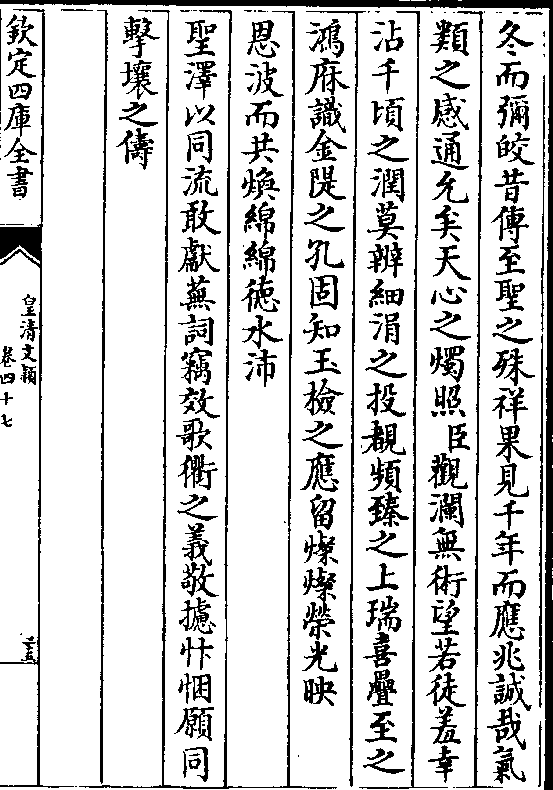 冬而彌皎昔傳至聖之殊祥果見千年而應兆誠哉氣
類之感通允矣天心之燭照臣觀瀾無術望若徒羞幸
沾千頃之潤莫辨細涓之投覩頻臻之上瑞喜疊至之
鴻庥識金隄之孔固知玉檢之應留燦燦榮光映
恩波而共煥綿綿德水沛
聖澤以同流敢獻蕪詞竊效歌衢之義敬攄忭悃願同
擊壤之儔
欽定四庫全書
皇清文穎
卷四十七
三五